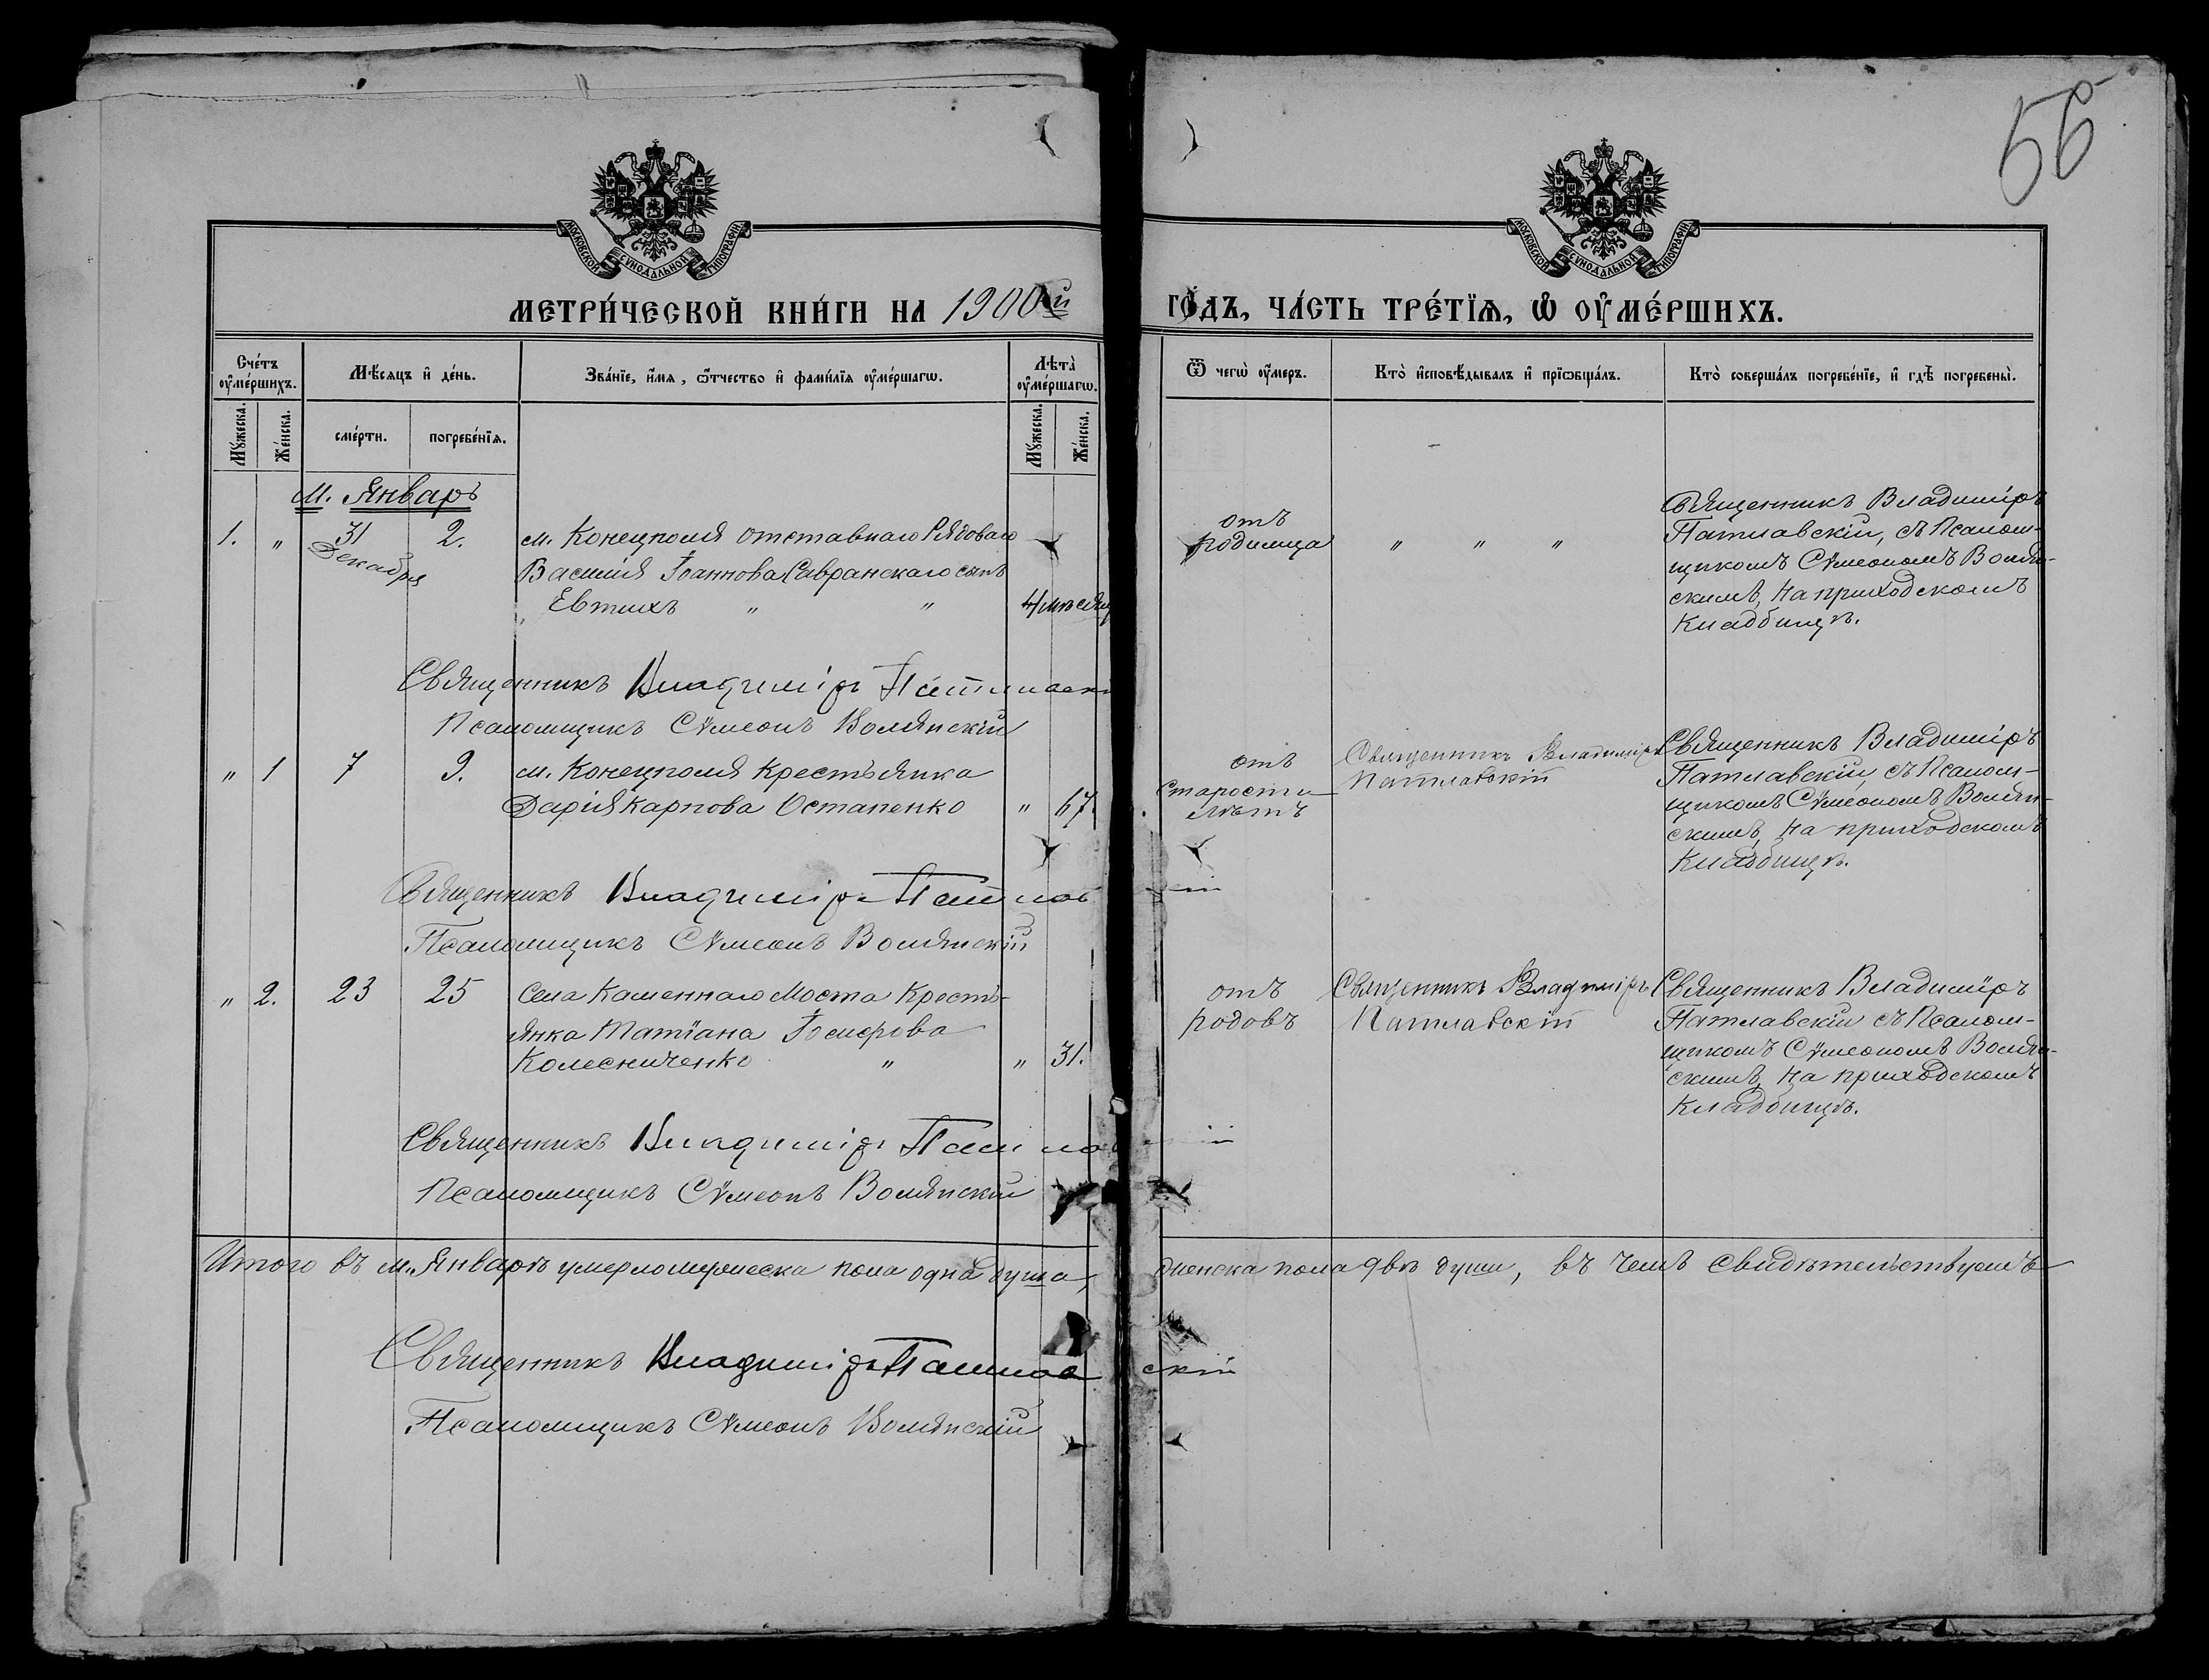 56
МОСКОВСКОЙ СѴНОДАЛЬНОЙ ТИПОГРАФІИ
МОСКОВСКОЙ СѴНОДАЛЬНОЙ ТИПОГРАФІИ
МЕТРИ́ЧЕСКОЙ КНИ́ГИ НА 1900й ГО́ДЪ, ЧА́СТЬ ТРЕ́ТЇѦ, Ѡ҆ ОУ҆МЕ́РШИХЪ.
Сче́тъ оу҆ме́ршихъ.
Мѣ́сяцъ и҆ де́нь.
Зва́нїе, и҆́мя, ѻ҆́тчество и҆ фами́лїя оу҆ме́ршагѡ.
Лѣта̀ оу҆ме́ршагѡ.
Ѿ чегѡ̀ оу҆́меръ.
Кто̀ и҆сповѣ́дывалъ и҆ прїѡбща́лъ.
Кто̀ соверша́лъ погребе́нїе, и҆ гдѣ̀ погребены̀.
Мꙋ́жеска.
Же́нска.
сме́рти.
погребе́нїя.
Мꙋ́жеска.
Же́нска.
М. Январь
1. " 31 Декабря 2.
м. Конецполя отставнаго Рядоваго
Василія Іоаннова Савранскаго сынъ
Евтихъ " " 4 мѣсяц
отъ
родимца
" " "
Священникъ Владиміръ
Патлавскій, съ Псалом-
щикомъ Сѵмеономъ Волян-
скимъ, на приходскомъ
Кладбищѣ.
Священникъ Владиміръ Патлавскі
Псаломщикъ Сѵмеонъ Волянскій
" 1 7 9.
м. Конецполя Крестьянка
Дарія Карпова Остапенко " 67.
отъ
Старости
лѣтъ
Священникъ Владиміръ
Патлавскій
Священникъ Владиміръ
Патлавскій, съ Псалом-
щикомъ Сѵмеономъ Волян-
скимъ, на приходскомъ
Кладбищѣ.
Священникъ Владиміръ Патлавскій
Псаломщикъ Сѵмеонъ Волянскій
" 2. 23 25
Села Каменнаго Моста Кресть-
янка Матіана Іосифова
Колесниченко " " 31.
отъ
родовъ
Священникъ Владиміръ
Патлавскій
Священникъ Владиміръ
Патлавскій съ Псалом-
щикомъ Сѵмеономъ Волян-
скимъ, на приходскомъ
Кладбищѣ.
Священникъ Владиміръ Патлавскій
Псаломщикъ Сѵмеонъ Волянскій
Итого въ м. Январѣ умерло мужеска пола одна душа, женска пола двѣ души, въ чемъ свидѣтельствуемъ
Священникъ Владиміръ Патлавскій
Псаломщикъ Сѵмеонъ Волянскій